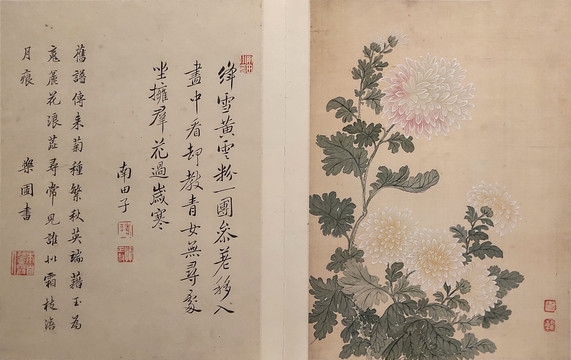 絳雪黃雲粉一團參差移入
畫中看却教青女無尋處
坐擁羣花過歲寒
南田子
舊譜傳來菊種繁秋英瑞藹玉為
花浪蕊尋常見誰似霜枝
月痕
樂園書